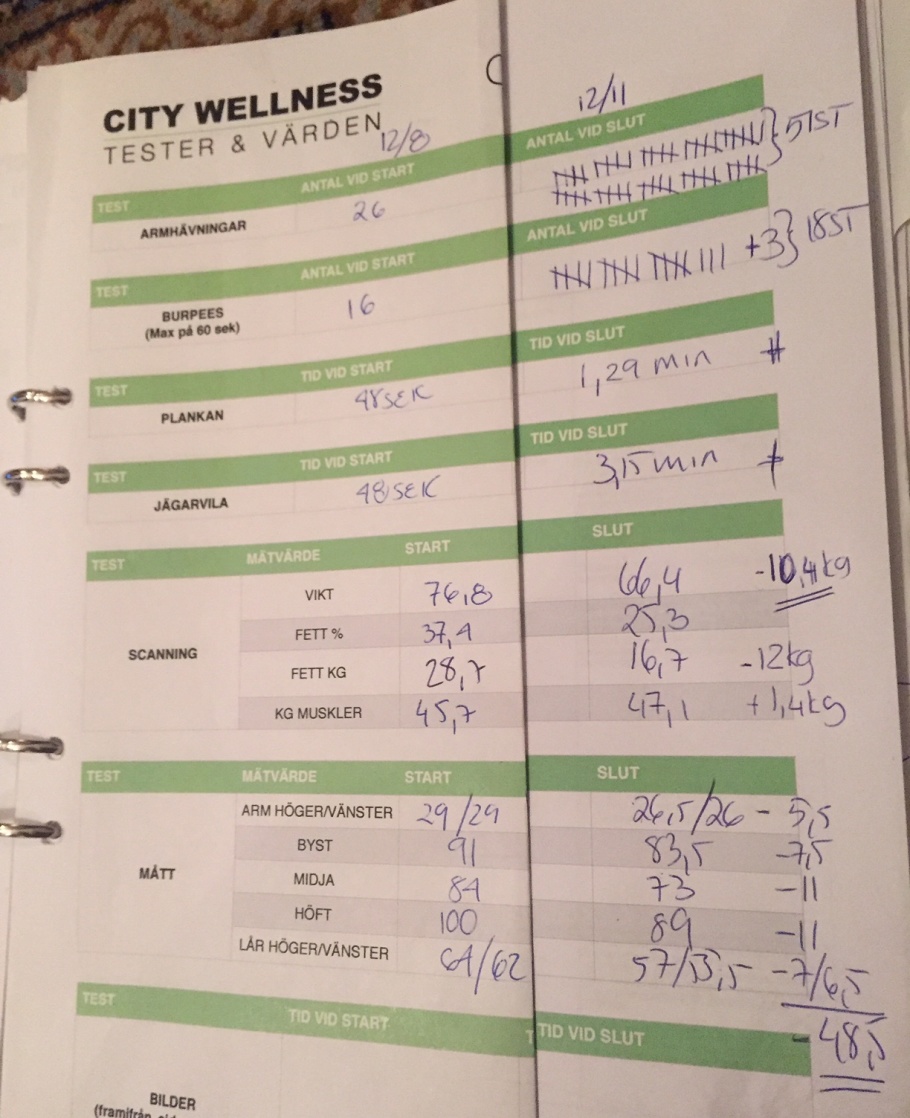 CITY WELLNESS
TESTER & VÄRDEN
12/8 12/11
TEST ANTAL VID START ANTAL VID SLUT
ARMHÄVNINGAR 26 51ST
TEST ANTAL VID START ANTAL VID SLUT
BURPEES 16 +3 18ST
(Max på 60 sek)
TEST TID VID START TID VID SLUT
PLANKAN 48SEK 1,29 min
TEST TID VID START TID VID SLUT
JÄGARVILA 48SEK 3,15 min
TEST MÄTVÄRDE START SLUT
SCANNING
VIKT 76,8 66,4 -10,4kg
FETT % 37,4 25,3
FETT KG 28,7 16,7 -12kg
KG MUSKLER 45,7 47,1 +1,4kg
TEST MÄTVÄRDE START SLUT
MÅTT
ARM HÖGER/VÄNSTER 29/29 26,5/26 - 5,5
BYST 91 83,5 -7,5
MIDJA 84 73 -11
HÖFT 100 89 -11
LÅR HÖGER/VÄNSTER 64/62 57/55,5 -7/6,5
- 48,5
TEST TID VID START T TID VID SLUT
BILDER
(framifrån,